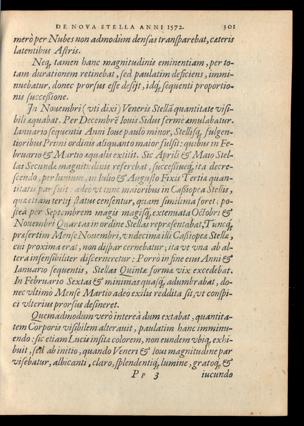 DE NOVA STELLA ANNI 1572. 301
merò per Nubes non admodum densas transparebat, cæteris
latentibus Astris.
Neq, tamen hanc magnitudinis eminentiam, per to-
tam durationem retinebat, sed paulatim deficiens, immi-
nuebatur, donec prorsus esse desijt, idq, sequenti proportio-
nis successione.
In Nouembri (uti dixi) Veneris Stellã quantitate visi-
bili æquabat. Per Decembrẽ Iouis Sidus fermè æmulabatur.
Ianuario sequentis Anni Ioue paulo minor, Stellisq, fulgen-
tioribus Primi ordinis aliquanto maior fulsit: quibus in Fe-
bruario & Martio æqualis extitit. Sic Aprili & Maio Stel-
las Secundæ magnitudinis referebat, successiueq, ita decre-
scendo, per Iunium, in Iulio & Augusto Fixis Tertiæ quan-
titatis par fuit: adeo vt tunc maioribus in Cassiopea Stellis,
quæ etiam tertij status censentur, quam simillima foret: po-
stea per Septembrem magis magisq, extenuata Octobri &
Nouembri Quartas in ordine Stellas repræsentabat, Tuncq,
præsertim Mense Nouembri, vndecimæ illi Cassiopeæ Stellæ,
cui proxima erat, non dispar cernebatur, ita vt vna ab al-
tera insensibiliter discerneretur: Porrò in fine eius Anni &
Ianuario sequentis, Stellas Quintæ formæ vix excedebat.
In Februario Sextas & minimas quasq, adumbrabat, do-
nec vltimo Mense Martio adeo exilis reddita sit, vt conspi-
ci vlterius prorsus desineret.
Quemadmodum verò interea dum extabat, quantita-
tem Corporis visibilem alterauit, paulatim hanc imminu-
endo: sic etiam Lucis insitæ colorem, non eundem vbiq, exhi-
buit, sed ab initio, quando Veneri & Ioui magnitudine par
visebatur, albicanti, claro, splendentiq, lumine, gratoq, &
P p 3 iucundo